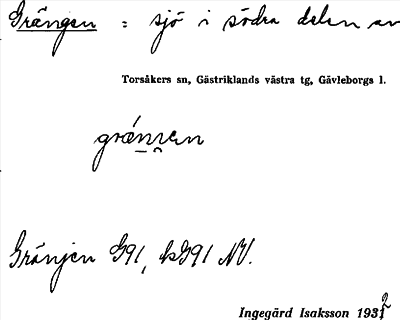 Grängen : sjö i södra delen av
Torsåkers sn, Gästriklands västra tg, Gävleborgs l.
Gränjen G91, kG91 NV.
Ingegärd Isaksson 1932